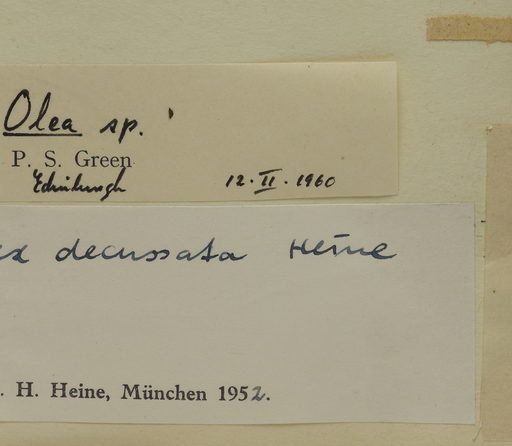 Olea sp.
P. S. Green
Edinburgh 12·II·1960
ex decussata Heine
. H. Heine, München 1952.